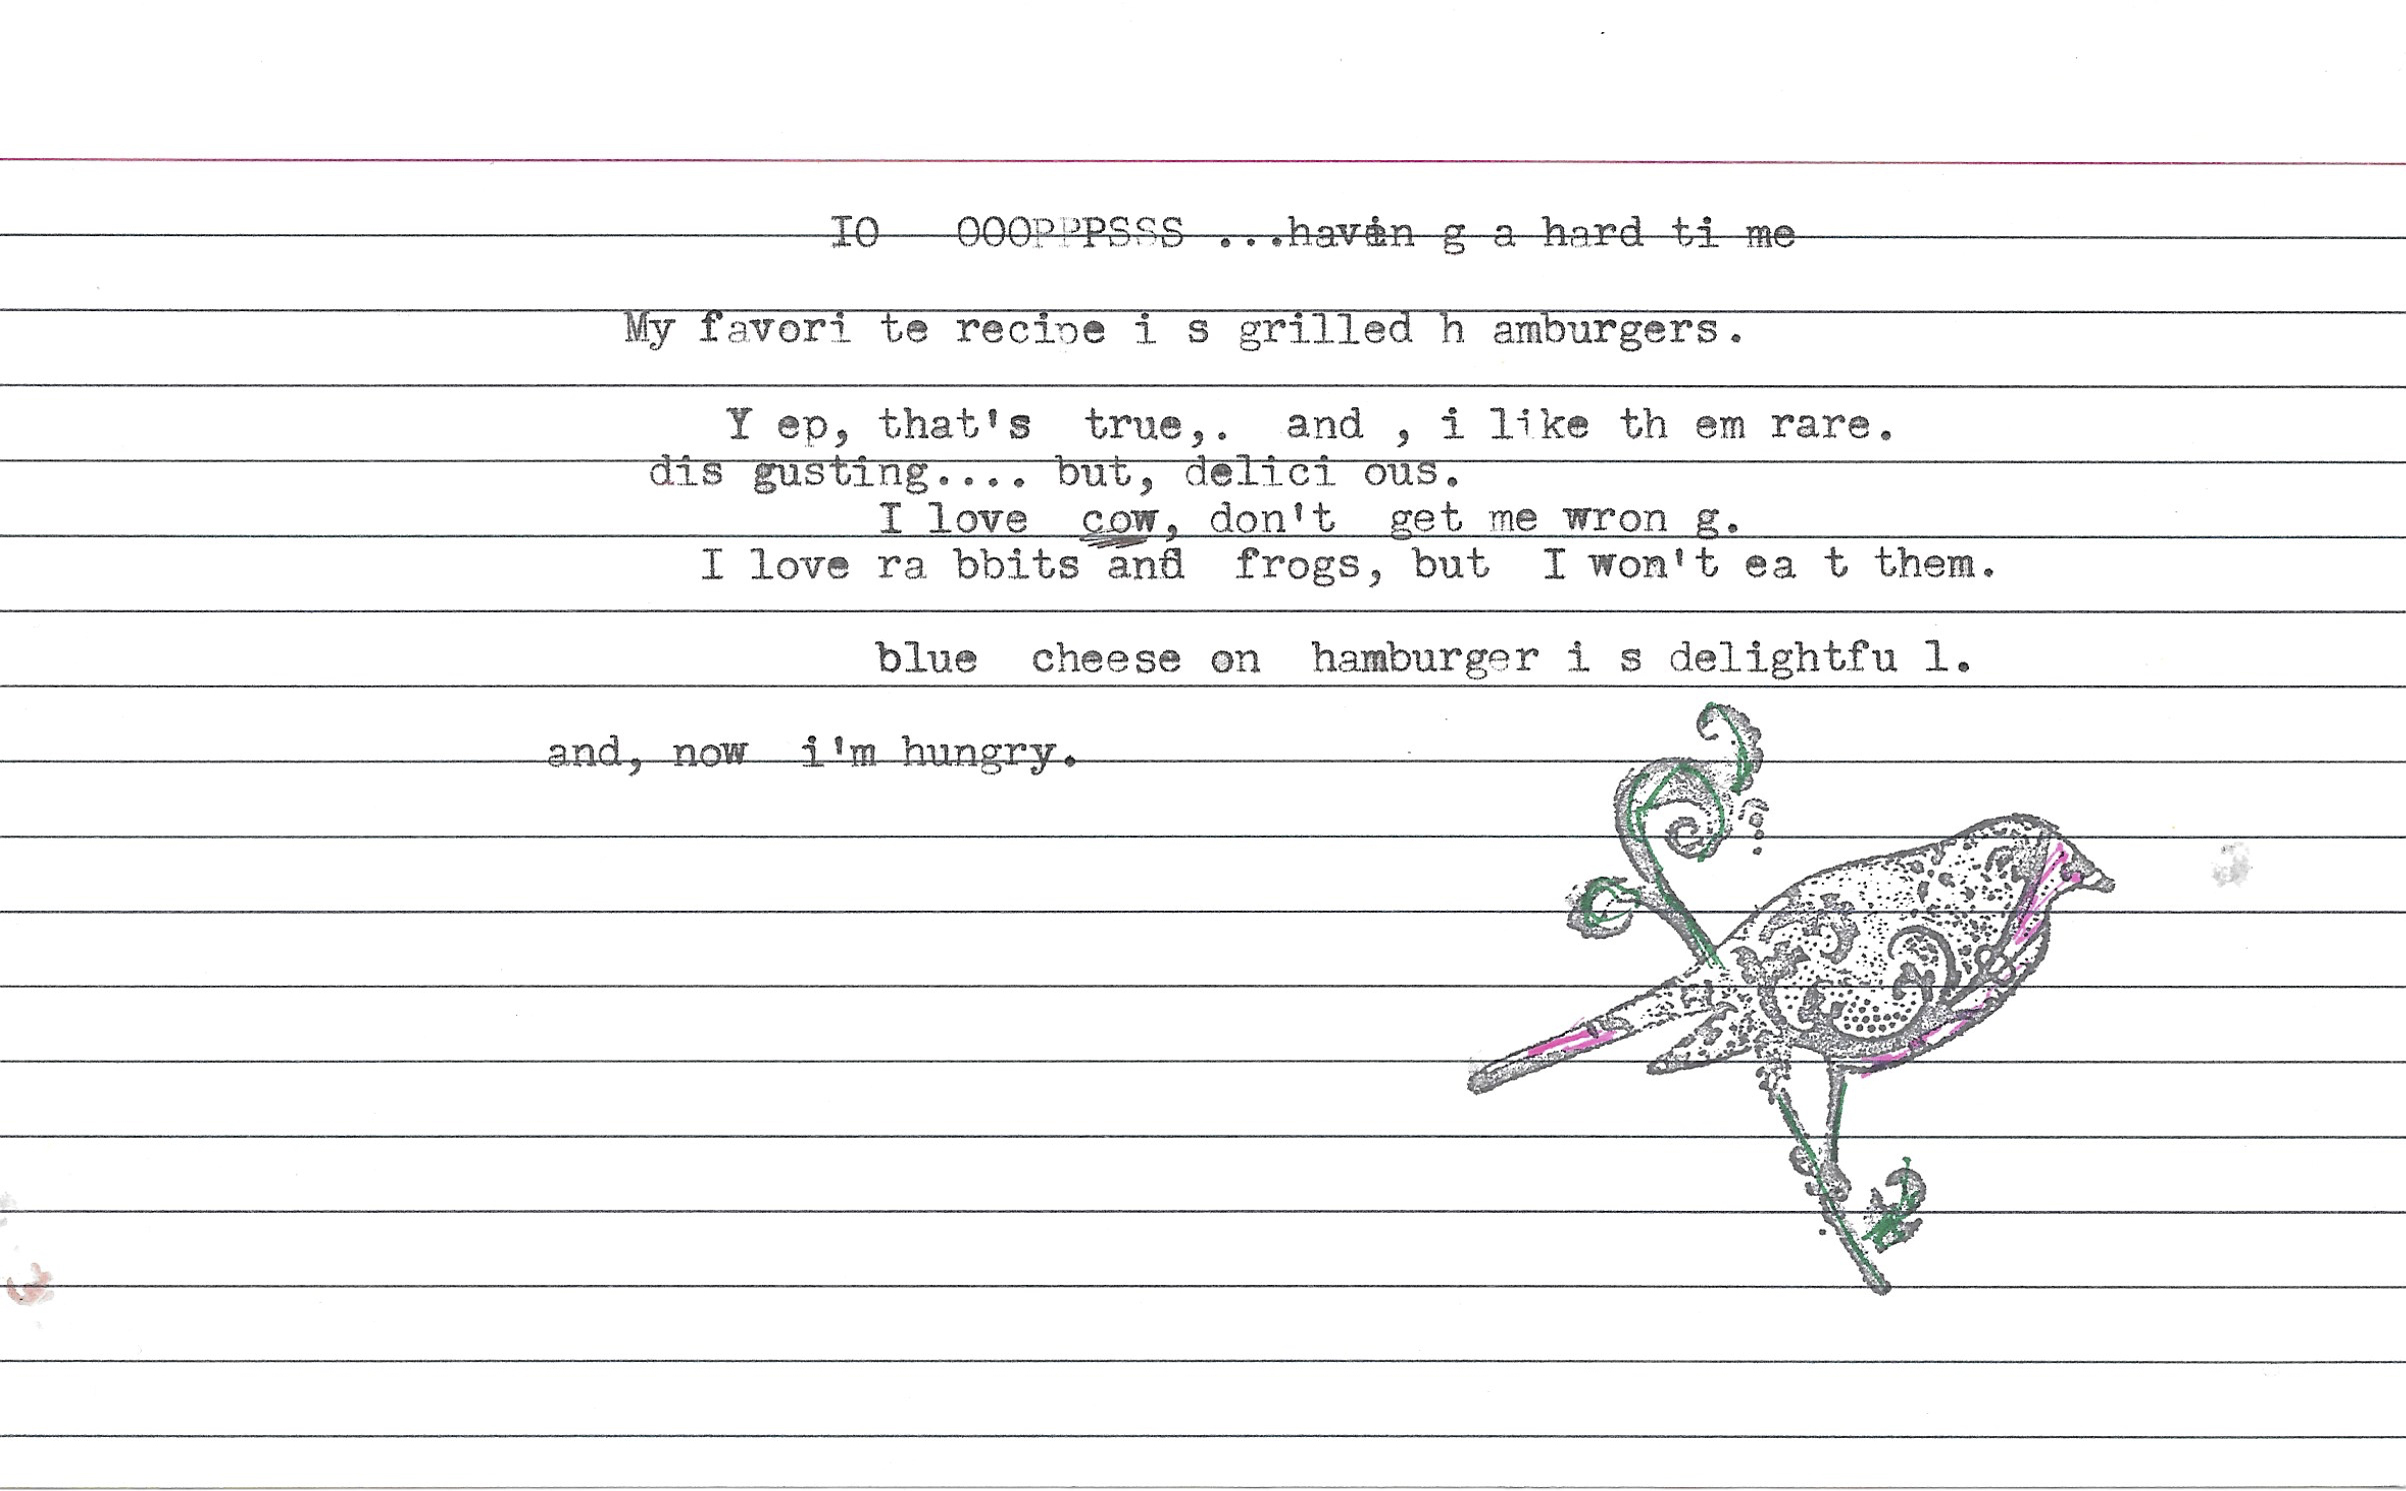 IO   OOOPPPSSS ...havin g a hard ti me
My favori te recipe i s grilled h amburgers.
Y ep, that's  true,.  and , i like th em rare.
dis gusting.... but, delici ous.
I love  cow, don't  get me wron g.
I love ra bbits and  frogs, but  I won't ea t them.
blue  cheese on  hamburger i s delightfu l.
and, now  i'm hungry.